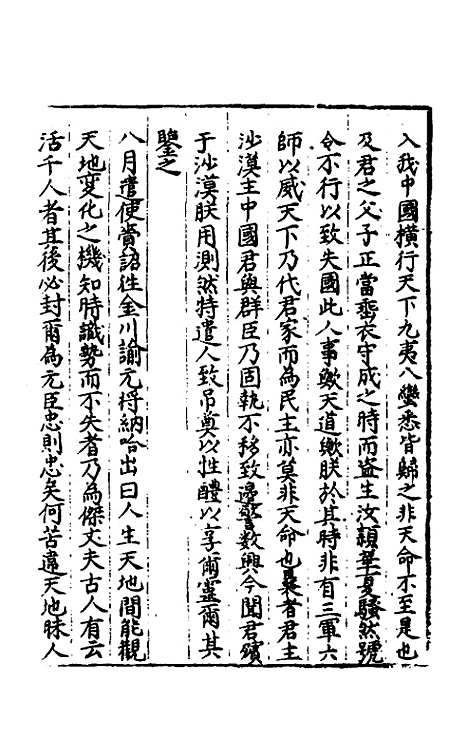 入我中國橫行天下九夷八蠻悉皆歸之非天命不至是也
及君之父子正當垂衣守成之時而盜生汝潁華夏騷然號
令不行以致失國此人事歟天道歟朕於其時非有三軍六
師以威天下乃代君家而為民主亦莫非天命也曩者君主
沙漠主中國君與群臣乃固執不移致邊警數興今聞君殯
于沙漠朕用惻然特遣人致吊奠以牲醴以享爾靈爾其
鑒之
八月遣使賫詔徃金川諭元將納哈出曰人生天地間能觀
天地變化之機知時識勢而不失者乃為傑丈夫古人有云
活千人者其後必封爾為元臣忠則忠矣何苦違天地昧人